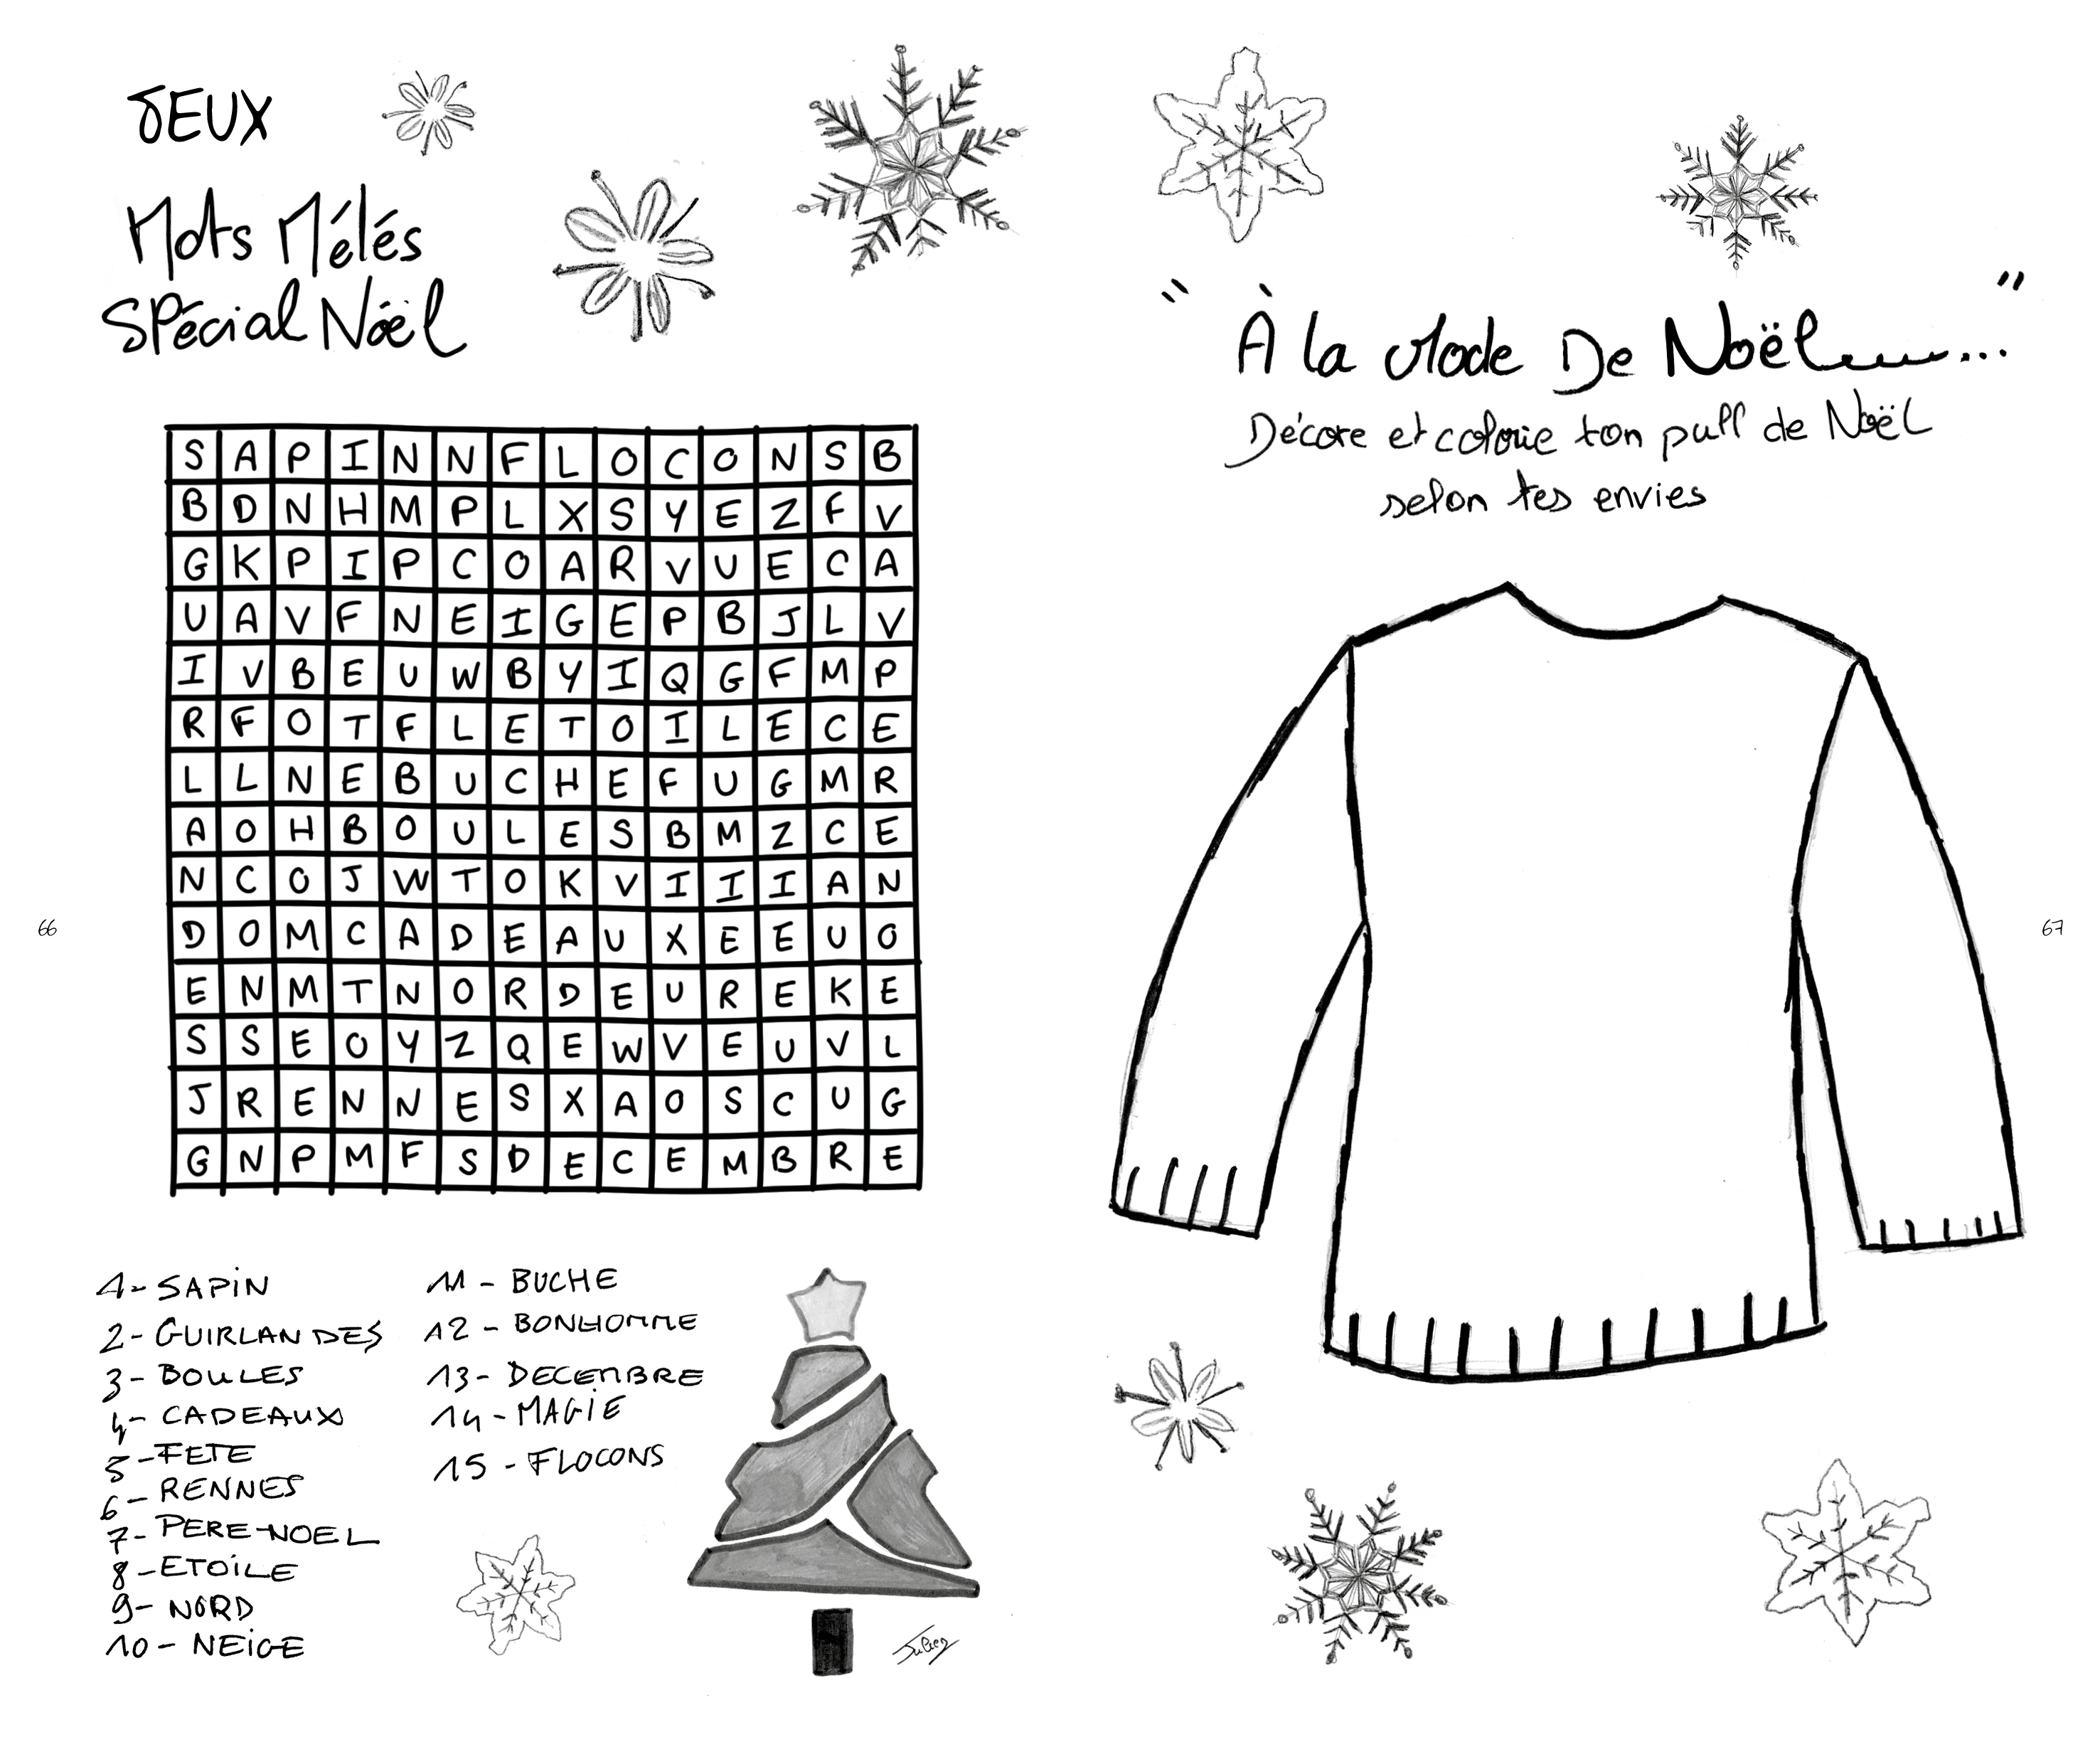 JEUX
Mots Mélés
Spécial Noël
S A P I N N F L O C O N S B
B D N H M P L X S Y E Z F V
G K P I P C O A R V U E C A
U A V F N E I G E P B J L V
I V B E U W B Y I Q G F M P
R F O T F L E T O I L E C E
L L N E B U C H E F U G M R
A O H B O U L E S B M Z C E
N C O J W T O K V I I I A N
D O M C A D E A U X E E U O
E N M T N O R D E U R E K E
S S E O Y Z Q E W V E U V L
J R E N N E S X A O S C U G
G N P M F S D E C E M B R E
1- SAPIN
2- GUIRLANDES
3- BOULES
4- CADEAUX
5- FETE
6- RENNES
7- PERE-NOEL
8- ETOILE
9- NORD
10- NEIGE
11- BUCHE
12- BONHOMME
13- DECEMBRE
14- MAGIE
15- FLOCONS
Julien
66
" À la Mode De Noël... "
Décore et colorie ton pull de Noël
selon tes envies
67